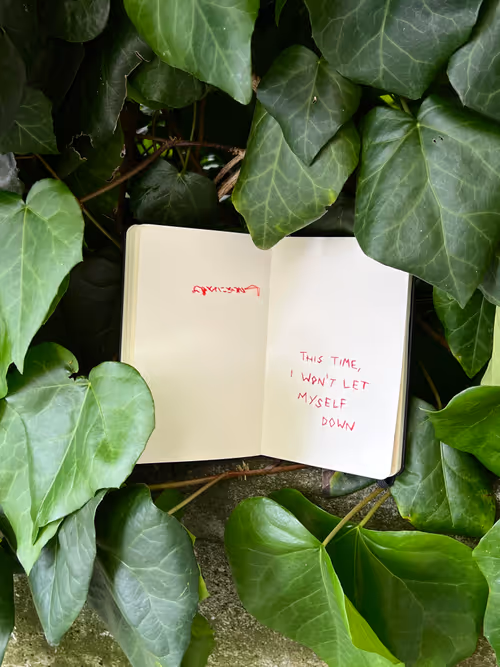 THIS TIME,
I WON'T LET
MYSELF
DOWN